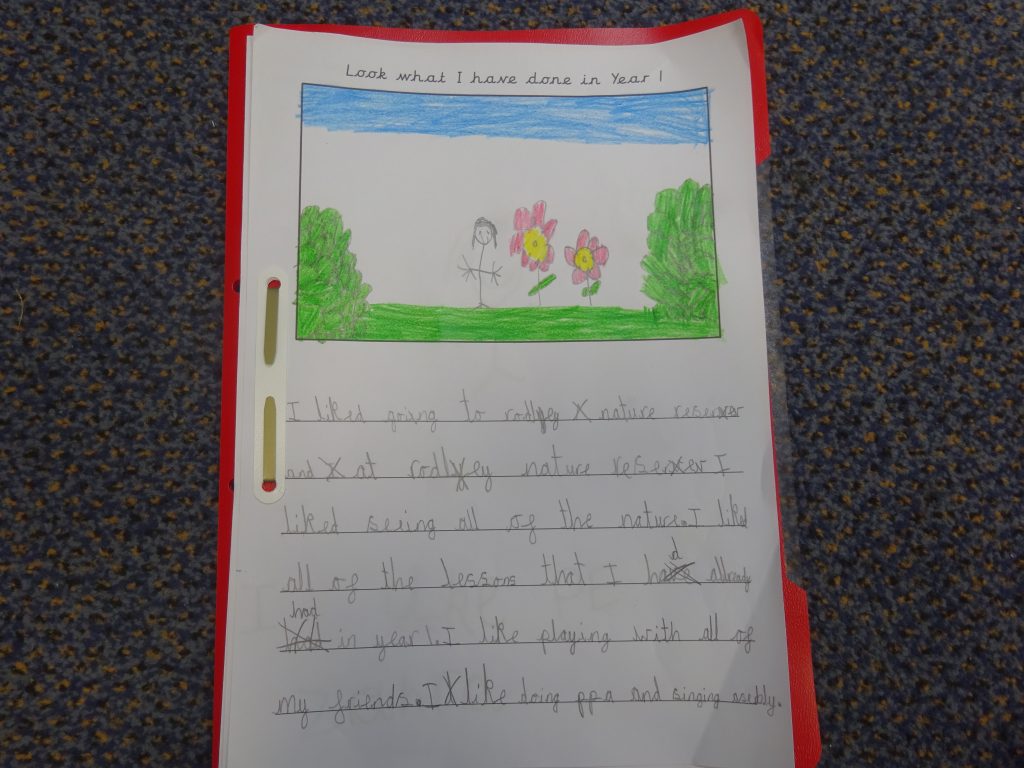 Look what I have done in Year 1
I liked going to rodley nature reserver
and at rodley nature reserver I
liked seeing all of the nature. I liked
all of the lessons that I had allready
had in year 1. I like playing with all of
my friends. I like doing ppa and singing assebly.